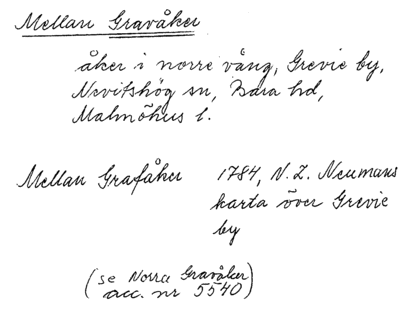 Mellan Gravåker
åker i norre vång, Grevie by,
Nevitshög sn, Bara hd,
Malmöhus l.
Mellan Grafåker 1784, N. Z. Neumans
karta över Grevie
by
(se Norra Gravåker
acc. nr 5540)